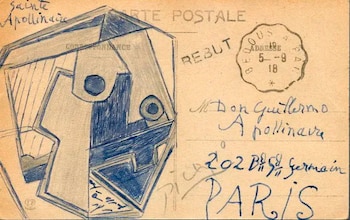 Sainte
Apollinaire
CARTE POSTALE
CORRESPONDANCE
REBUT
ADRESSE
BEDOUS A PAU
5--9
18
M Don Guillermo
Apollinaire
202 Bd St Germain
PARIS